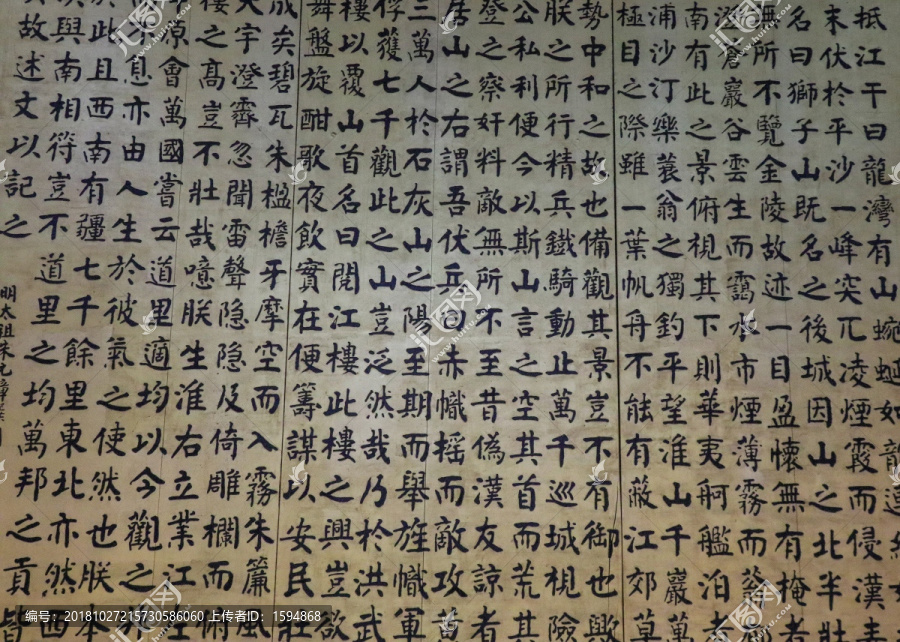 抵江干曰龍灣有山蜿蜒如龍連
末伏於平沙一峰突兀凌煙霞而侵漢表
名曰獅子山既名之後城因山之北半壯
無所不覽金陵故迹一目盈懷無有掩者
澄蒼巖谷雲生而靄水市煙薄霧而蓊
南有此之景俯視其下則華夷舸艦泊者
浦沙汀樂蓑翁之獨釣平望淮山千巖萬
極目之際雖一葉帆舟不能有蔽江郊草
勢中和之故也備觀其景豈不有御也歟
朕之所行精兵鐵騎動止萬千巡城視險
公私利便今以斯山言之空其首而荒其
登之察奸料敵無所不至昔偽漢友諒者
居山之右謂吾伏兵曰赤幟搖而敵攻萬
三萬人於石灰山之陽至期而舉旌幟軍
俘獲七千觀此之山豈泛然哉乃於洪武
樓以覆山首名曰閱江樓此樓之興豈欲
舞盤旋酣歌夜飲實在便籌謀以安民壯
成矣碧瓦朱楹檐牙摩空而入霧朱簾風
天宇澄霽忽聞雷聲隱隱及倚雕欄而俯
樓之高豈不壯哉噫朕生淮右立業江左
原會萬國嘗云道里適均以今觀之
不息亦由人生於彼氣之使然也朕本
於此且西南有疆七千餘里東北亦然西
與南相符豈不道里之均萬邦之貢皆
故述文以記之
明太祖朱元璋撰
编号：20181027215730586060 上传者ID：1594868